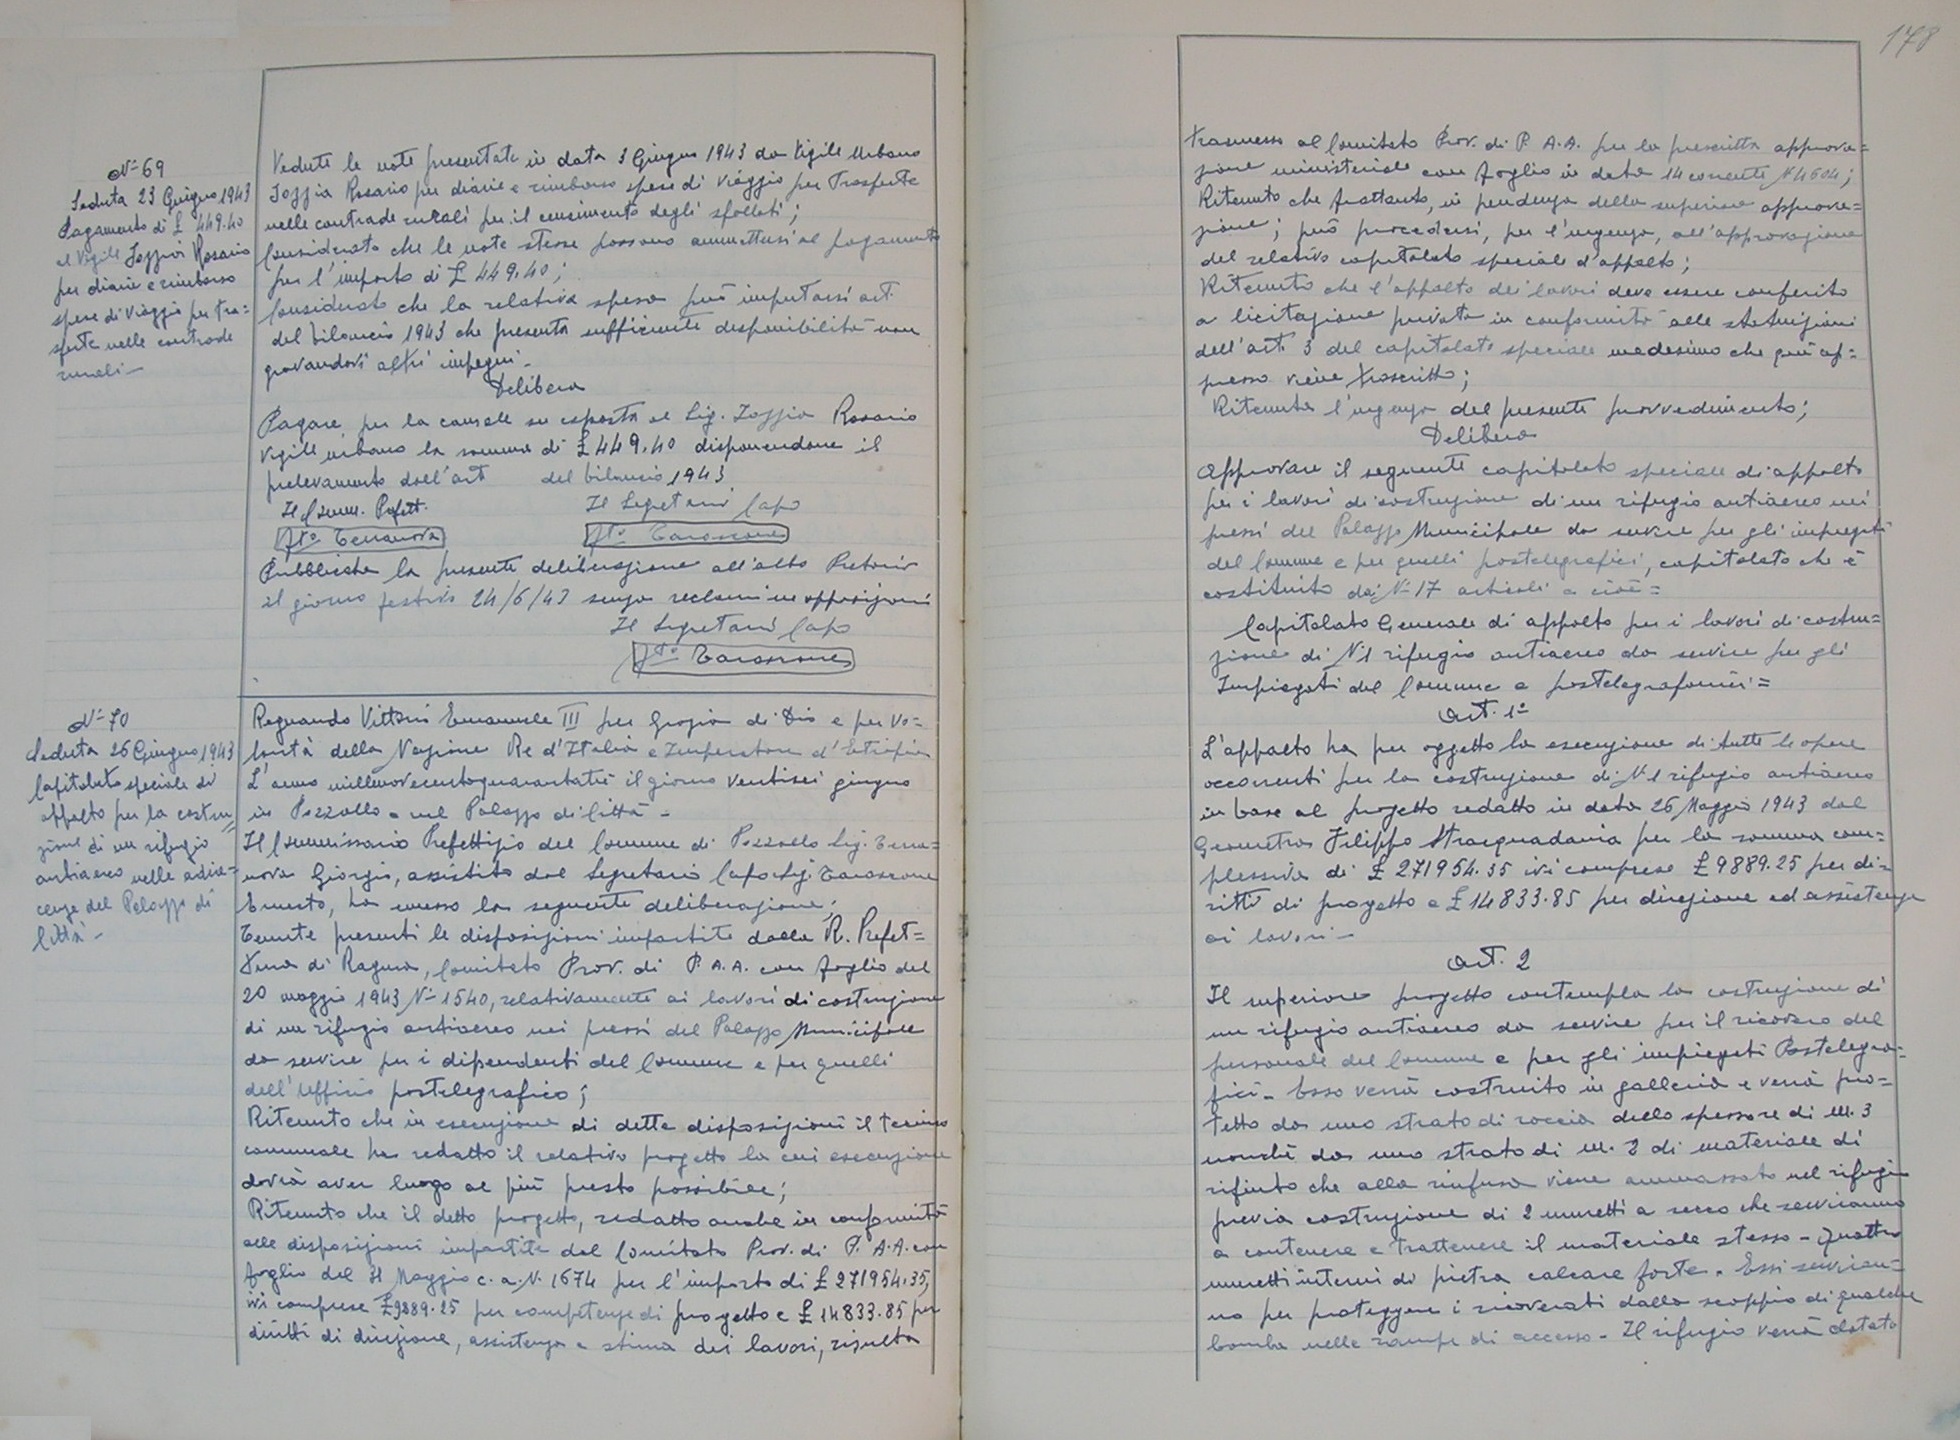 178
N° 69
Seduta 23 Giugno 1943
Pagamento di £ 449.40
al Vigile Rosario
per diarie e rimborso
spese di viaggio per tra=
sferte nelle contrade
rurali –
Vedute le note presentate in data 3 Giugno 1943 da Vigile Urbano
Rosario per diarie e rimborso spese di viaggio per Trasferte
nelle contrade rurali per il censimento degli sfollati;
Considerato che le note stesse possono ammettersi al pagamento
per l'importo di £ 449.40;
Considerato che la relativa spesa può imputarsi art.
del bilancio 1943 che presenta sufficiente disponibilità non
gravandovi altri impegni –
Delibera
Pagare per la causale su esposta al Sig. Rosario
Vigile urbano la somma di £ 449.40 disponendone il
prelevamento dall'art del bilancio 1943
Il Comm. Prefett. Il Segretario Capo
Fto Terranova Fto
Pubblicata la presente deliberazione all'albo Pretorio
il giorno festivo 24/6/43 senza reclami ne opposizioni
Il Segretario Capo
Fto
N° 70
Seduta 26 Giugno 1943
Capitolato speciale di
appalto per la costru=
zione di un rifugio
antiaereo nelle adia=
cenze del Palazzo di
Città –
Regnando Vittorio Emanuele III per Grazia di Dio e per Vo=
lontà della Nazione Re d'Italia e Imperatore d'Etiopia
L'anno millenovecentoquarantatrè il giorno ventisei giugno
in Pozzallo e nel Palazzo di Città –
Il Commissario Prefettizio del Comune di Pozzallo Sig. Terra=
nova Giorgio, assistito dal Segretario Capo Sig.
Ernesto, ha emesso la seguente deliberazione;
Tenute presenti le disposizioni impartite dalla R. Prefet=
tura di Ragusa, Comitato Prov. di P. A. A. con foglio del
20 maggio 1943 N° 1540, relativamente ai lavori di costruzione
di un rifugio antiaereo nei pressi del Palazzo Municipale
da servire per i dipendenti del Comune e per quelli
dell'Ufficio postelegrafico;
Ritenuto che in esecuzione di dette disposizioni il tecnico
comunale ha redatto il relativo progetto la cui esecuzione
dovrà aver luogo al più presto possibile;
Ritenuto che il detto progetto, redatto anche in conformità
alle disposizioni impartite dal Comitato Prov. di P. A. A. con
foglio del 31 Maggio c. a. N. 1674 per l'importo di £ 271954.35,
ivi comprese £ 9889.25 per competenze di progetto e £ 14833.85 per
diritti di direzione, assistenza e stima dei lavori, risulta
trasmesso al Comitato Prov. di P. A. A. per la prescritta approva=
zione ministeriale con foglio in data 14 corrente N. 4604;
Ritenuto che frattanto, in pendenza della superiore approva=
zione; può procedersi, per l'urgenza, all'approvazione
del relativo capitolato speciale d'appalto;
Ritenuto che l'appalto dei lavori deve essere conferito
a licitazione privata in conformità alle statuizioni
dell'art. 3 del capitolato speciale medesimo che quì ap=
presso viene trascritto;
Ritenuta l'urgenza del presente provvedimento;
Delibera
Approvare il seguente capitolato speciale di appalto
per i lavori di costruzione di un rifugio antiaereo nei
pressi del Palazzo Municipale da servire per gli impiegati
del Comune e per quelli postelegrafici, capitolato che è
costituito da N° 17 articoli e cioè =
Capitolato Generale di appalto per i lavori di costru=
zione di N° 1 rifugio antiaereo da servire per gli
Impiegati del Comune e postelegrafonici =
Art. 1°
L'appalto ha per oggetto la esecuzione di tutte le opere
occorrenti per la costruzione di N° 1 rifugio antiaereo
in base al progetto redatto in data 26 Maggio 1943 dal
Geometra Filippo Stracquadania per la somma com=
plessiva di £ 271954.35 ivi comprese £ 9889.25 per di=
ritti di progetto e £ 14833.85 per direzione ed assistenza
ai lavori –
Art. 2
Il superiore progetto contempla la costruzione di
un rifugio antiaereo da servire per il ricovero del
personale del Comune e per gli impiegati Postelegra=
fici – Esso verrà costruito in galleria e verrà pro=
tetto da uno strato di roccia dello spessore di m. 3
nonchè da uno strato di m. 2 di materiale di
rifiuto che alla rinfusa viene ammassato nel rifugio
previa costruzione di 2 muretti a secco che serviranno
a contenere e trattenere il materiale stesso – Quattro
muretti interni di pietra calcare forte. Essi serviran=
no per proteggere i ricoverati dallo scoppio di qualche
bomba nelle rampe di accesso – Il rifugio verrà dotato